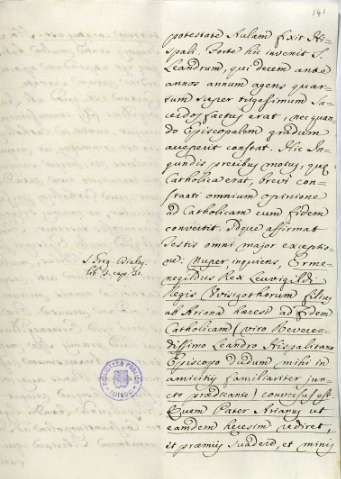 141
potestate Aulam fixit His-
pali. Forte hic invenit S.
Leandrum, qui decem ante
annos annum agens quar-
tum super trigesimum Sa-
cerdos factus erat, nec quan-
do Episcopalem gradum
acceperit constat. Hic In-
gundis precibus motus, quæ
Catholica erat, brevi con-
omnium opinione
ad Catholicam cum fidem
convertit. Idque affirmat
Testis omni major exceptio-
ne: Nuper inquiens, Erme-
negildus Rex Leuvigildi
Regis Wisigothorum filius
ab Ariana hæresi ad fidem
Catholicam (viro Reveren-
dissimo Leandro Hispalitano
Episcopo dudum mihi in
amicitiis familiariter junc-
to prædicante) conversus est.
Quem Pater Arianus ut
eamdem hæresim rediret,
et præmiis suadere, et minis
S. Greg. Dialog.
lib. 3. cap. 31.